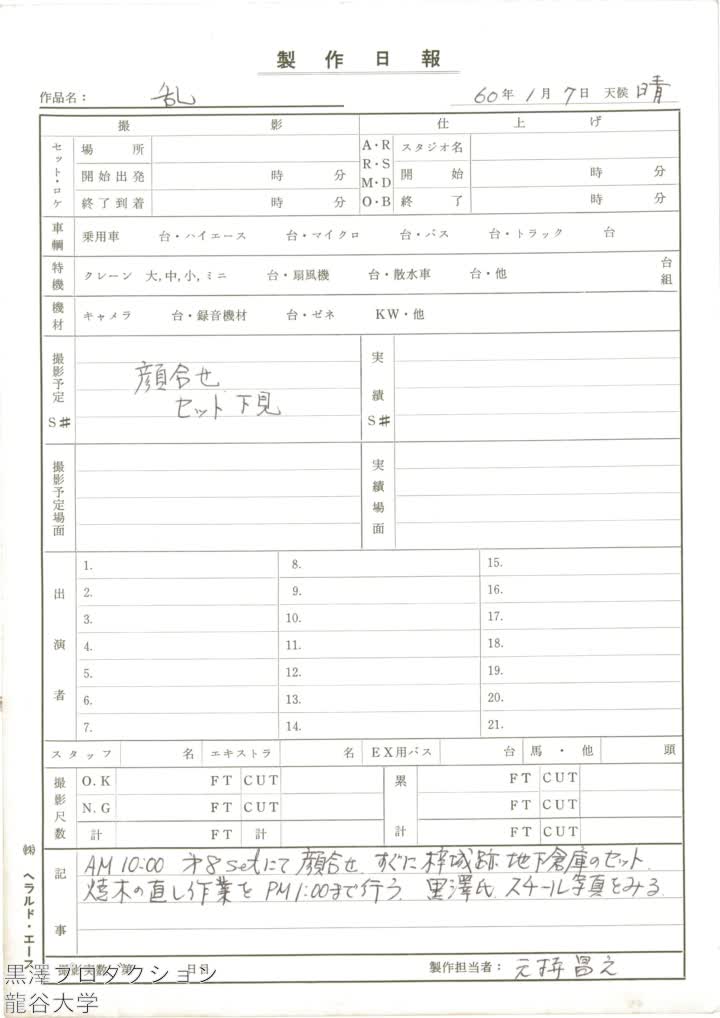 製作日報
作品名： 乱 60年 1月 7日 天候 晴
撮影 仕上げ
セット・ロケ 場所 A・R R・S M・D O・B スタジオ名
開始出発 時 分 開始 時 分
終了到着 時 分 終了 時 分
車輌 乗用車 台・ハイエース 台・マイクロ 台・バス 台・トラック 台
特機 クレーン 大,中,小,ミニ 台・扇風機 台・散水車 台・他 台組
機材 キャメラ 台・録音機材 台・ゼネ KW・他
撮影予定 S# 顔合せ 実績 S#
セット下見
撮影予定場面 実績場面
出演者
1. 8. 15.
2. 9. 16.
3. 10. 17.
4. 11. 18.
5. 12. 19.
6. 13. 20.
7. 14. 21.
スタッフ 名 エキストラ 名 EX用バス 台 馬・他 頭
撮影尺数 O.K FT CUT 累計 FT CUT
N.G FT CUT FT CUT
計 FT 計 FT CUT
記事
AM 10:00 才8 setにて顔合せ、すぐに梓城跡、地下倉庫のセット、
焼木の直し作業をPM1:00まで行う。黒澤氏、スチール写真をみる
撮影実数 第 日目 製作担当者： 元持昌之
㈱ヘラルド・エース
黒澤プロダクション
龍谷大学